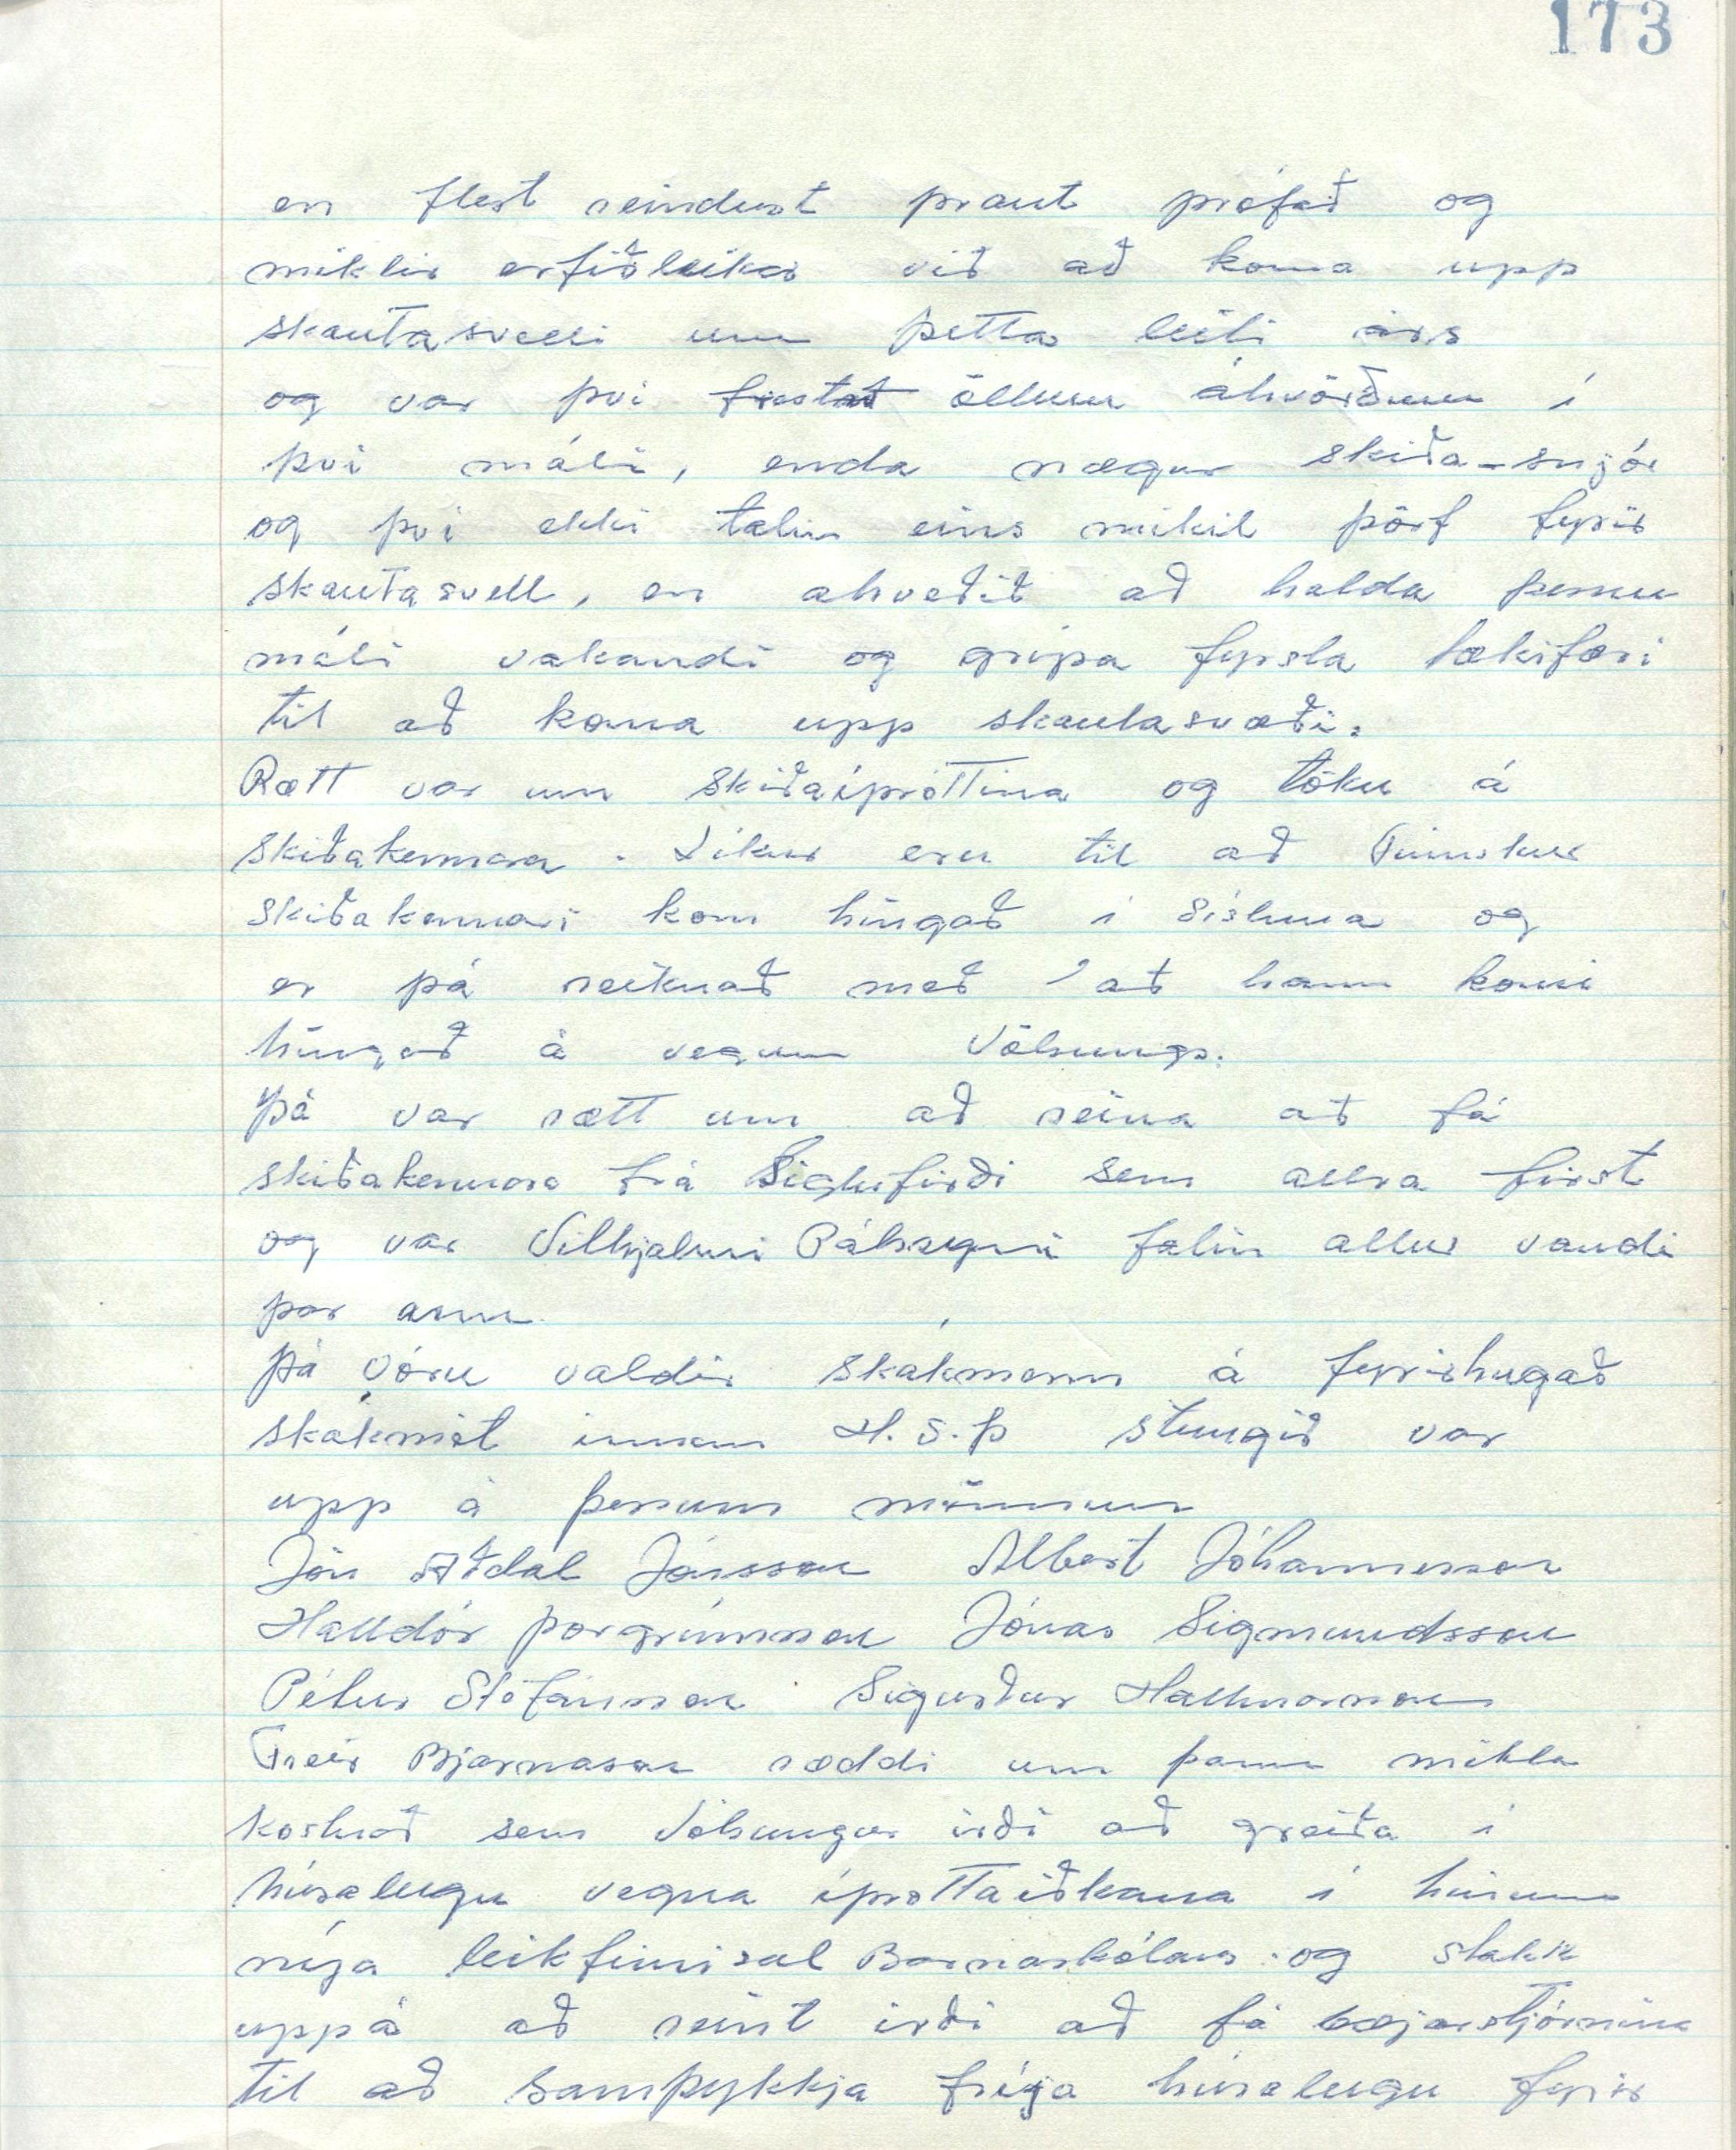 173
en flest reindust þraut prófað og
miklir erfiðleikar við að koma upp
skautasvelli um þetta leiti árs
og var því frestað öllum ákvörðunum í
því máli, enda nægur skíða-snjór
og því ekki talin eins mikil þörf fyrir
skautasvell, en akveðið að halda þessu
máli vakandi og grípa fyrsta tækifæri
til að koma upp skautasvæði.
Rætt var um skíðaíþróttina og töku á
skíðakennara. Líkur eru til að Finnskur
skíðakennari kom hingað í sísluna og
er þá reiknað með að hann komi
hingað á vegum Völsungs.
Þá var rætt um að reina að fá
skíðakennara frá Siglufirði sem allra first
og var Vilhjalmi Pálssyni falin allur vandi
þar um
Þá vóru valdir skákmenn á fyrirhugað
skákmót innan H.S.Þ stungið var
upp á þessum mönnum
Jón Aðdal Jónsson Albert Jóhannesson
Halldór Þorgrímsson Jónas Sigmundsson
Pétur Stefánsson Sigurður Hallmarsson
Freir Bjarnason ræddi um þann mikla
kostnað sem Völsungur irði að greiða í
húsaleigu vegna íþróttaiðkana í hinum
nýja leikfimisal Barnaskólans og stakk
uppá að reint irði að fá bæjarstjórnina
til að samþykkja fríja húsaleigu fyrir